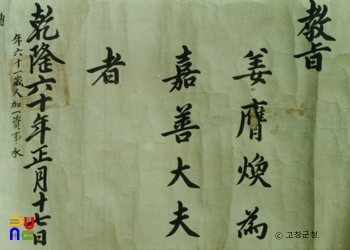 教旨
姜膺煥爲
嘉善大夫
者
乾隆六十年正月十七日
年六十一歲人加一資事承
© 고창군청.